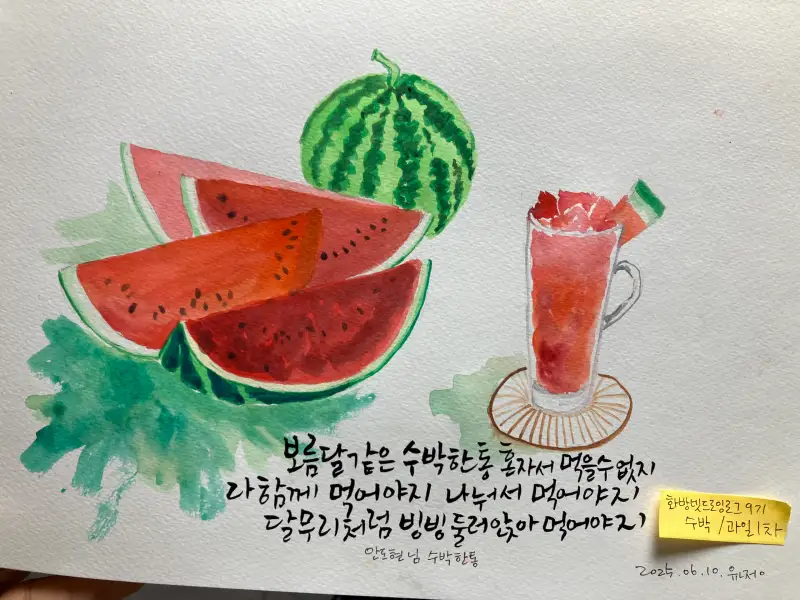 보름달같은 수박한통 혼자서 먹을수없지
다함께 먹어야지 나눠서 먹어야지
달무리처럼 빙빙둘러앉아 먹어야지
안도현님 수박한통
화방빗드로잉로그9기
수박 / 과일1차
2025.06.10.